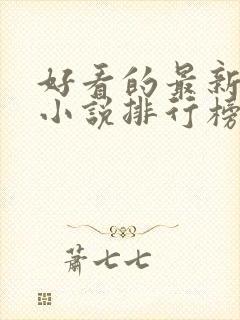 好看的最新
小说排行榜
萧七七